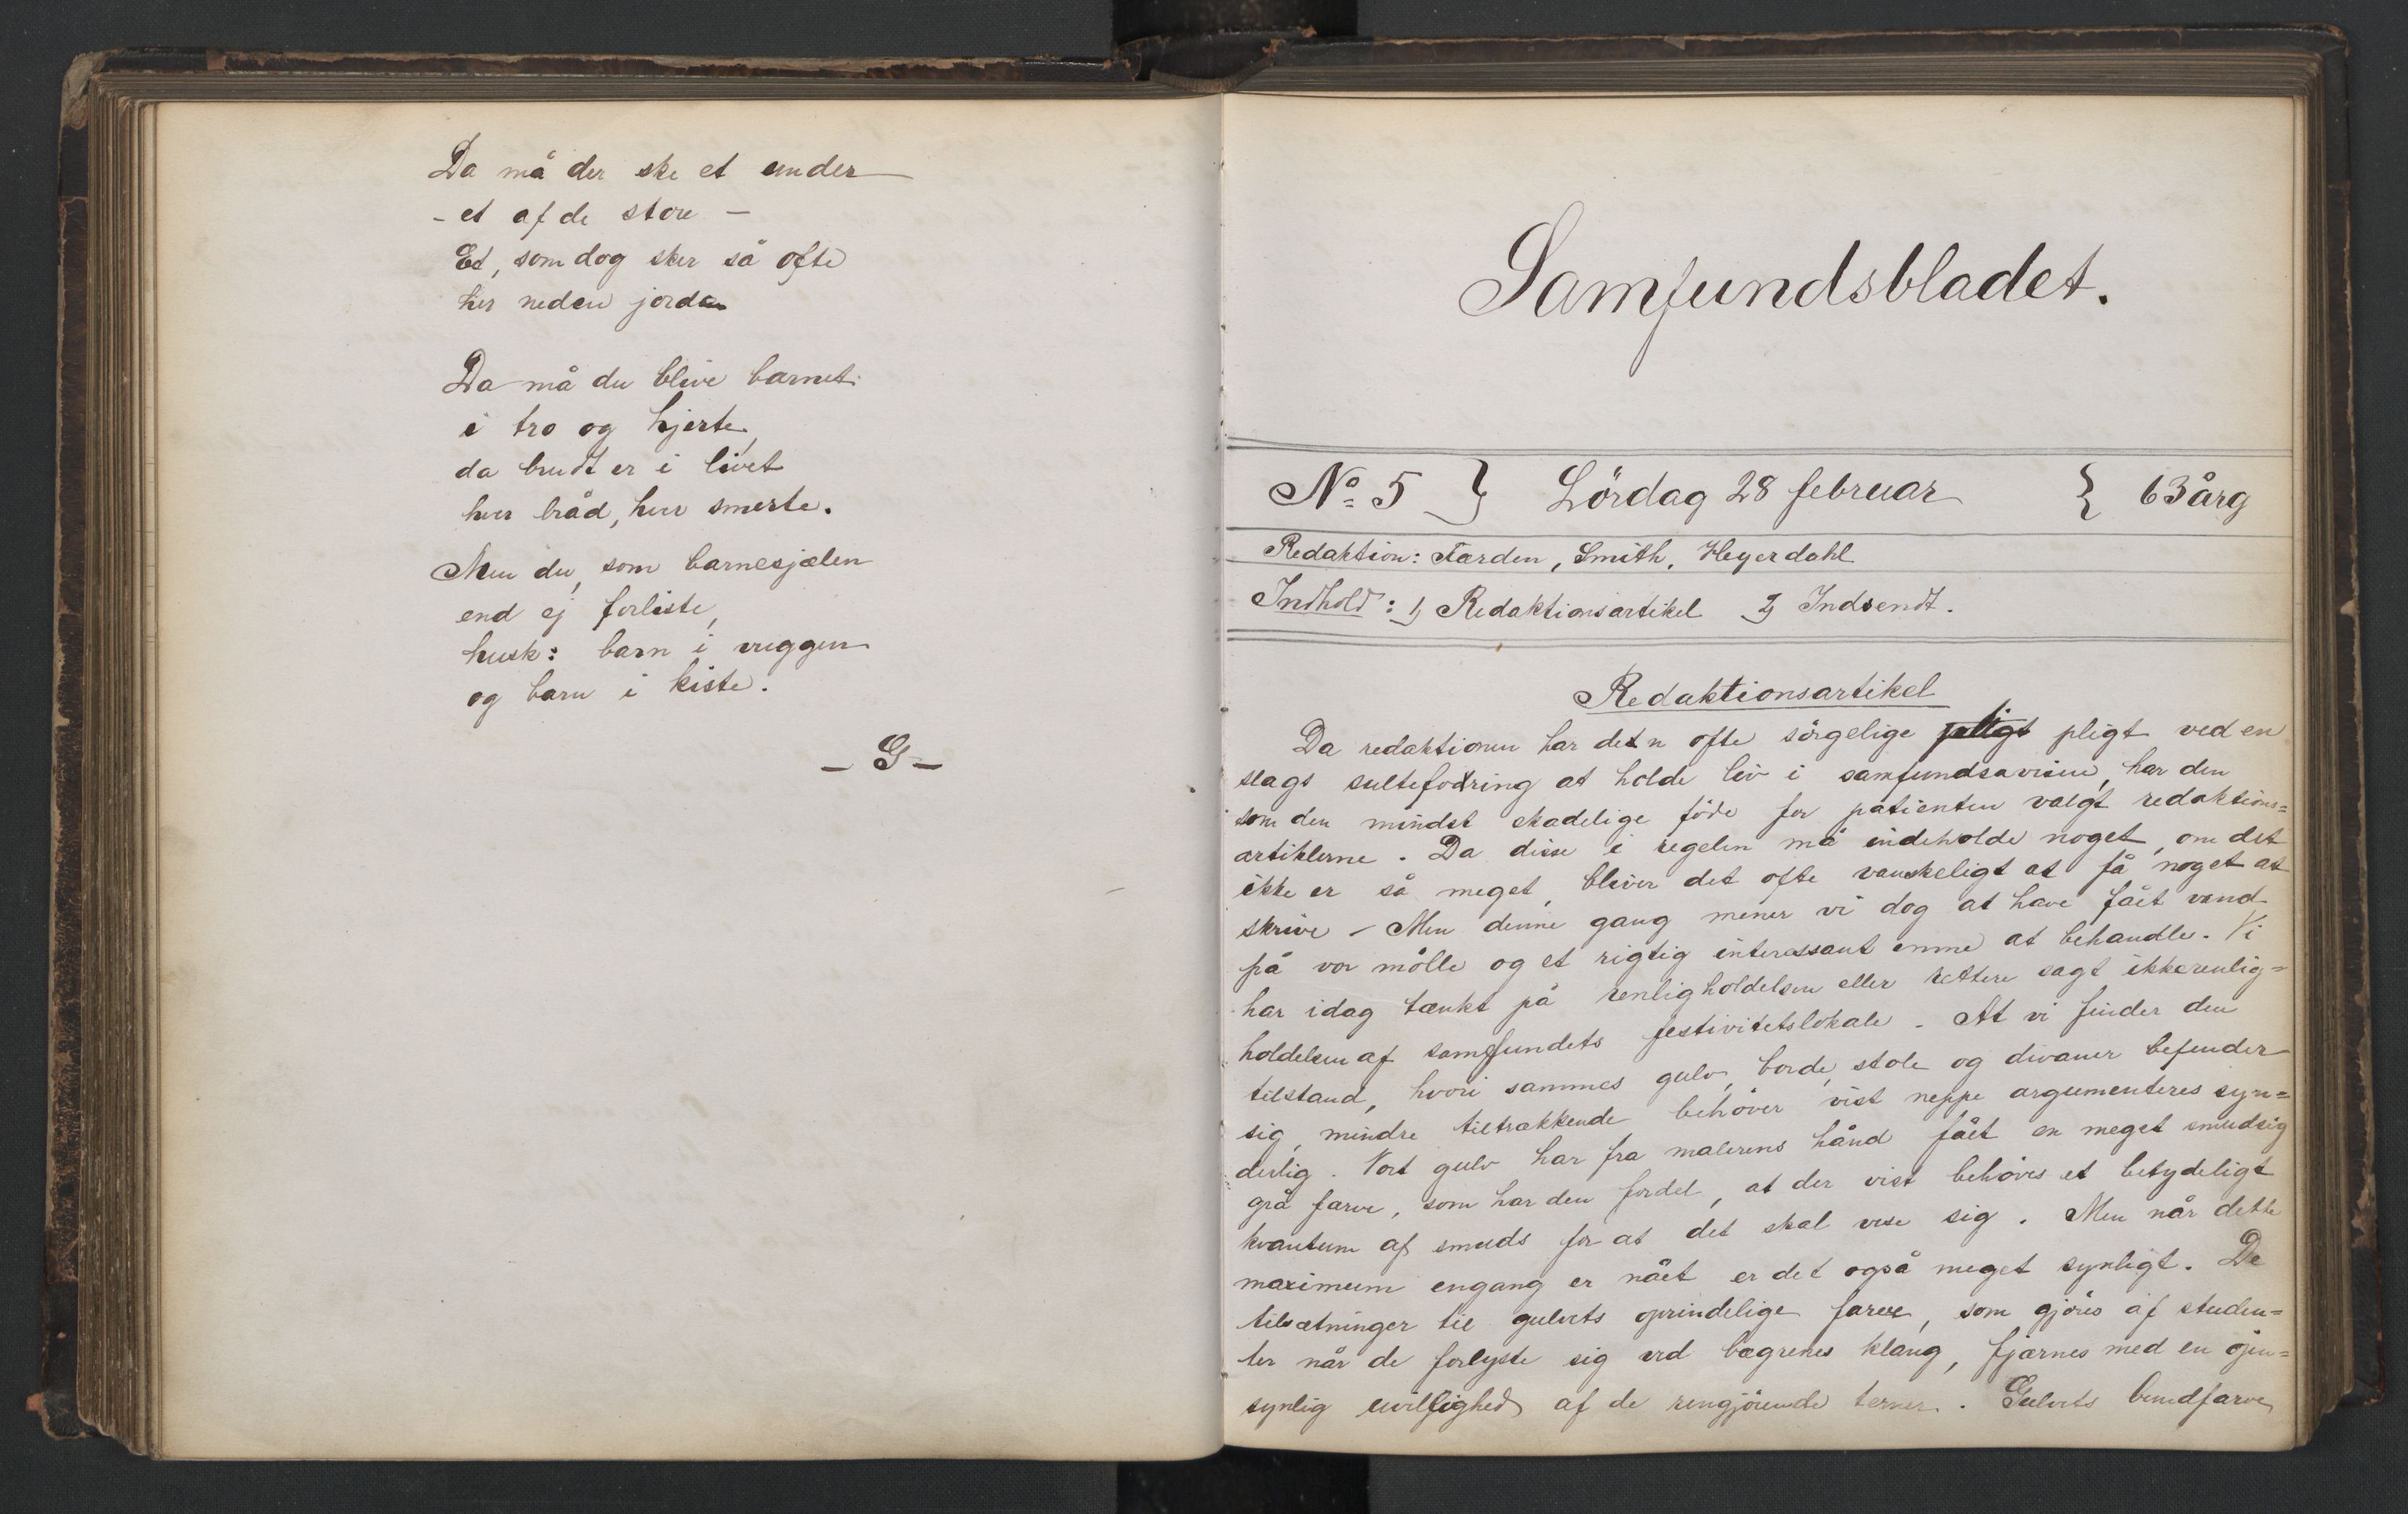 Da må der ske et under
- et af de store -
Et, som dog sker så ofte
her neden jorden
Da må du blive barnet
i tro og hjerte,
da brudt er i livet
hver bråd, hver smerte.
Men du, som barnesjælen
end ej forliste,
husk: barn i vuggen
og barn i kiste.
- G -
Samfundsbladet.
No. 5 } Lördag 28 februar { 63 årg
Redaktion: Færden, Smith, Heyerdahl
Indhold: 1) Redaktionsartikel 2) Indsendt.
Redaktionsartikel
Da redaktionen har den ofte sörgelige pligt ved en
slags sultefodring at holde liv i samfundsavisen, har den
som den mindst skadelige föde for patienten valgt redaktions=
artiklerne. Da disse i regelen må indeholde noget, om det
ikke er så meget, bliver det ofte vanskeligt at få noget at
skrive - Men denne gang mener vi dog at have fået vand
på vor mölle og et rigtig interessant emne at behandle. Vi
har idag tænkt på renligholdelsen eller rettere sagt ikkerenlig=
holdelsen af samfundets festivitetslokale. At vi finder den
tilstand, hvori sammes gulv, borde, stole og divaner befinder
sig, mindre tiltrækkende behöver vist neppe argumenteres syn=
derlig. Vort gulv har fra malerens hånd fået en meget smudsig
grå farve, som har den fordel, at der vist behöves et betydeligt
kvantum af smuds for at det skal vise sig. Men når dette
maximum engang er nået er det også meget synligt. De
tilsætninger til gulvets oprindelige farve, som gjöres af studen=
ter når de forlyste sig ved bægrenes klang, fjærnes med en öjen=
synlig uvillighed af de rengjörende terner. Gulvets bundfarve